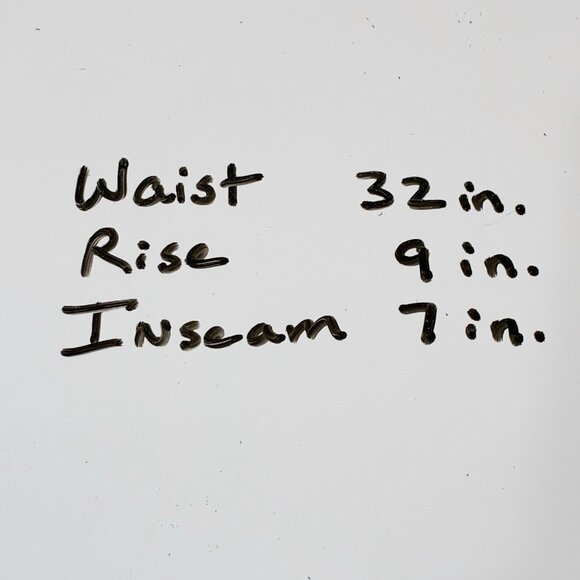 Waist 32 in.
Rise 9 in.
Inseam 7 in.